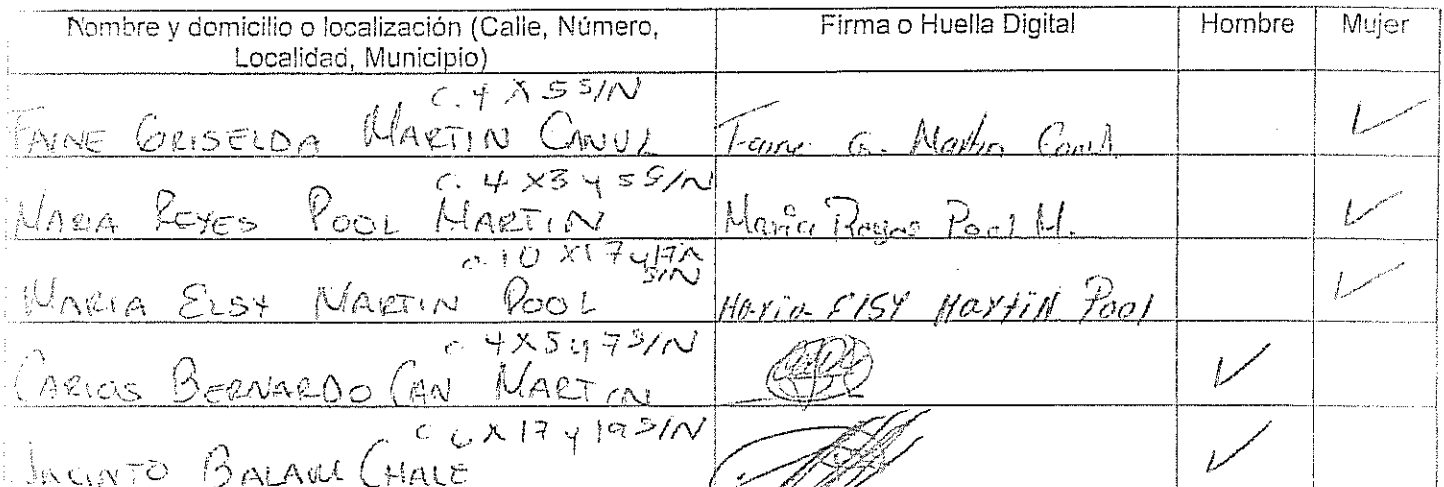 Nombre y domicilio o localización (Calle, Número, Localidad, Municipio) Firma o Huella Digital Hombre Mujer
C. 4 X 5 S/N
FAINE GRISELDA MARTIN CANUL Faine G. Martin Canul
C. 4 X3 y 5 S/N
MARIA REYES POOL MARTIN Maria Reyes Pool M.
C. 10 X17 y 17A S/N
MARIA ELSY MARTIN POOL Maria ElSY Martin Pool
C. 4X5 y 7 S/N
CARLOS BERNARDO CAN MARTIN
C 6 X 17 y 19 S/N
JACINTO BALAM CHALE